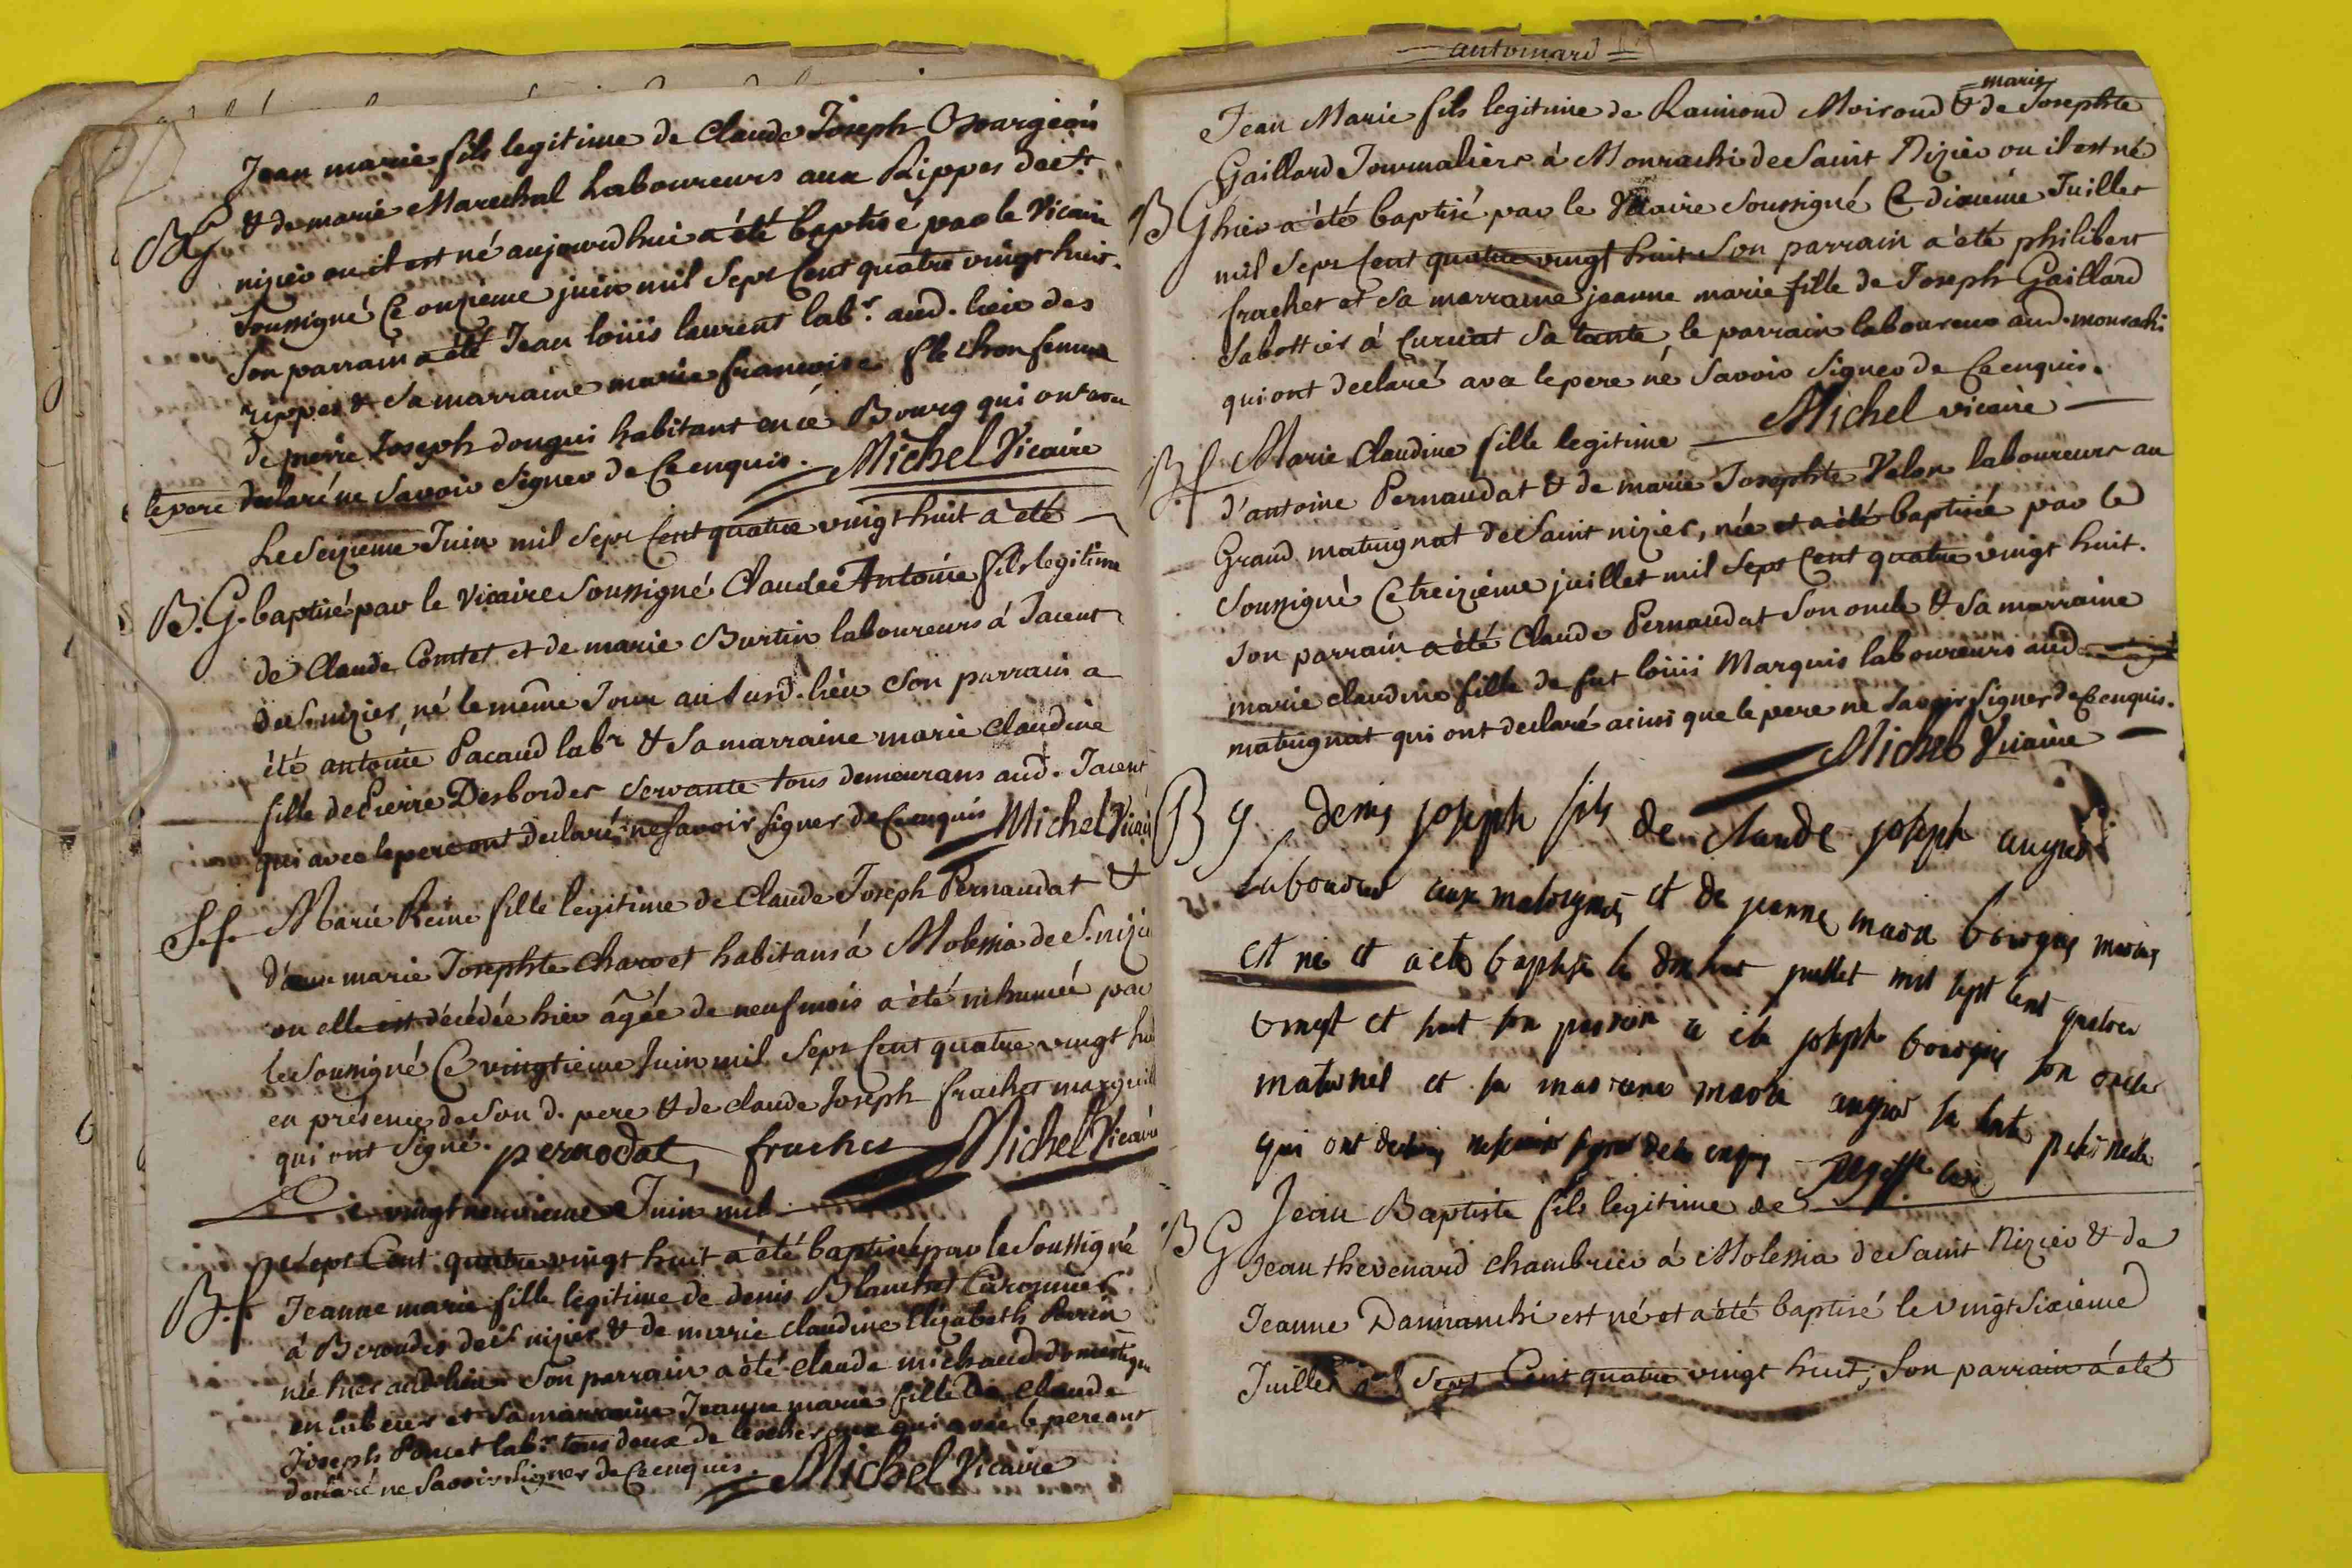 Jean marie fils legitime de Claude Joseph Bourgeois
BG & de marie Marechal Laboureurs aux Rippes de St
nizier ou il est né aujourdhui a été baptisé par le Vicaire
Soussigné Ce onzieme juin mil Sept Cent quatre vingt huit.
Son parrain a été Jean louis laurent labr. aud. lieu des
rippes & sa marraine marie francoise flechon femme
de pierre Joseph donqui habitant en cé Bourg qui ont avec
le pere declaré ne Savoir Signer de Ce enquis. Michel Vicaire
Le Seizieme Juin mil Sept Cent quatre vingt huit a été
B.G. baptisé par le Vicaire Soussigné Claude Antoine fils legitime
de Claude Comtet et de marie Burtin laboureurs á Jacent
de S. nizier, né le même Jour au susd. lieu Son parrain a
été antoine Pacaud labr & Sa marraine marie Claudine
fille de Pierre Desbordes Servante tous demeurans aud. Jacent
qui avec le pere ont declaré ne savoir signer de Ce enquis Michel Vicaire
S.f. Marie Reine fille legitime de Claude Joseph Pernaudat &
marie Josephte Charvet habitans á Molessia de S. nizier
ou elle est décédée hier âgée de neuf mois a été inhumée par
le Soussigné Ce vingtieme Juin mil Sept Cent quatre vingt hui
en presence de Son d. pere & de claude Joseph frachet marguill
qui ont Signé. pernodat frachet Michel Vicaire
Le vingt neuvieme Juin mil
Sept Cent quatre vingt huit a été baptisé par le Soussigné
B.f. Jeanne marie fille legitime de denis Blanchet
á Beroudes de S. nizier & de marie claudine Elizabeth Perrin
née hier aud. lieu Son parrain a été claude michaud domestique
et Sa marraine Jeanne marie fille De Claude
Joseph Poncet labr. tous deux de qui avec le pere ont
declaré ne Savoir Signer de Ce enquis. Michel Vicaire
antoinard
marie
Jean Marie fils legitime de Raimond Moiroud & de Josephte
Gaillard Journaliers á Monrachi de Saint Nizier ou il est né
BG hier a été baptisé par le Vicaire Soussigné Ce dixieme Juillet
mil Sept Cent quatre vingt huit Son parrain a été philibert
frachet et Sa marraine jeanne marie fille de Joseph Gaillard
Sabottier á Curciat Sa tante, le parrain laboureur aud. monrachi
qui ont declaré avec le pere né Savoir Signer de Ce enquis.
Michel vicaire
B.f Marie Claudine fille legitime
d'antoine Pernaudat & de marie Josephte Velon laboureurs au
Grand matrignat de Saint nizier, née et a été baptisée par le
Soussigné Ce treizième juillet mil Sept Cent quatre vingt huit.
Son parrain a été Claude Pernaudat Son oncle & Sa marraine
marie claudine fille de fut louis Marquis laboureurs aud
matrignat qui ont declaré ainsi que le pere ne Savoir Signer de Ce enquis.
Michel Vicaire
B g denis joseph fils de claude joseph
Laboureur aux et de jeanne marie
est né et a eté baptisé le dix huit juillet mil sept cent quatre
vingt et huit son parrain a été joseph son oncle
maternel et sa marraine marie sa tante
qui ont ne scavoir signer de ce enquis
Jean Baptiste fils legitime de
BG Jean thevenard chambrier á Molessia de Saint Nizier & de
Jeanne Dannanchi est né et a été baptisé le vingt Sixieme
Juillet mil Sept Cent quatre vingt huit; Son parrain a été